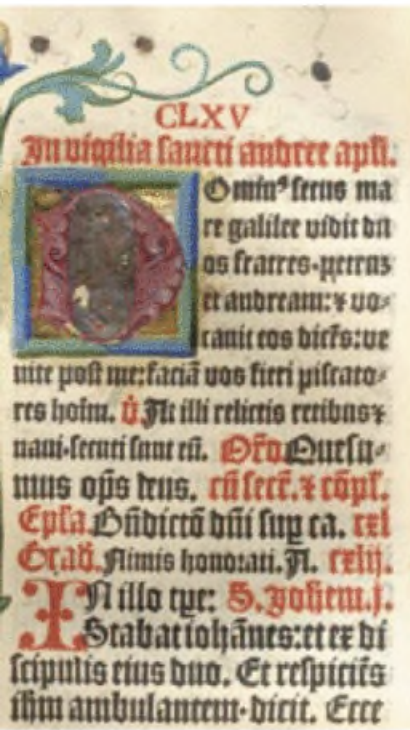 CLXV
In vigilia sancti andree apli.
Ominꝰ secus ma
re galilee vidit du
os fratres·petrum
et andream:⁊ vo⸗
cauit eos dicēs:ve
nite post me:faciā vos fieri piscato⸗
res hoīm. v̄ At illi relictis retibus⁊
naui·secuti sunt eū. Or̄o Quesu⸗
mus op̄s deus. cū secr̄. ⁊ cōpl̄.
Ep̄la. Bn̄dictō dn̄i sup ca. cxl
Grad̄. Nimis honorati. A. cxlij.
IN illo tp̄e: S. Johem. j.
Stabat iohānes:et ex di
scipulis eius duo. Et respiciēs
ihm ambulantem·dicit. Ecce